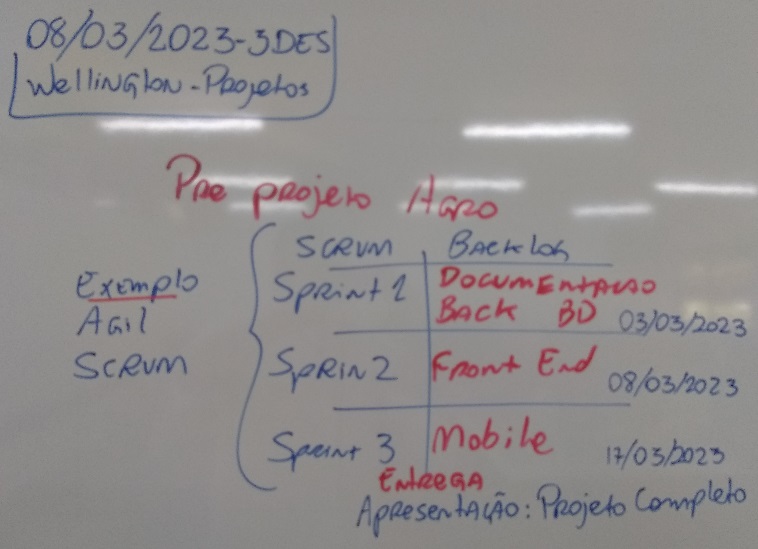 08/03/2023-3DES
Wellington-Projetos
Pre projeto Agro
SCRUM Backlog
Exemplo
Agil
SCRUM
Sprint 1 Documentacao
Back BD 03/03/2023
Sprin2 Front End 08/03/2023
Sprint 3 Mobile 17/03/2023
Entrega
Apresentação: Projeto Completo